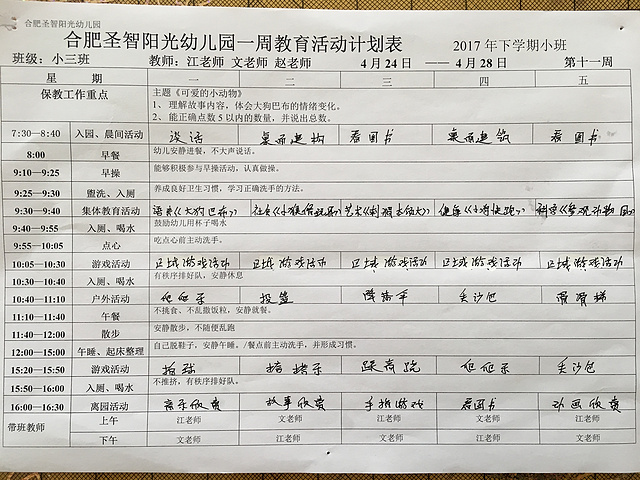 合肥圣智阳光幼儿园
合肥圣智阳光幼儿园一周教育活动计划表 2017 年下学期小班
班级：小三班 教师：江老师 文老师 赵老师 4 月 24 日 —— 4 月 28 日 第十一周
星 期 一 二 三 四 五
保教工作重点 主题《可爱的小动物》
1、 理解故事内容，体会大狗巴布的情绪变化。
2、 能正确点数 5 以内的数量，并说出总数。
7:30—8:40 入园、晨间活动 谈话 桌面建构 看图书 桌面建筑 看图书
8:00 早餐 幼儿安静进餐，不大声说话。
9:10—9:25 早操 能够积极参与早操活动，认真做操。
9:25—9:30 盥洗、入厕 养成良好卫生习惯，学习正确洗手的方法。
9:30—9:40 集体教育活动 语言《大狗巴布》 社会 艺术 健康 科学
9:40—9:55 入厕、喝水 鼓励幼儿用杯子喝水
9:55—10:05 点心 吃点心前主动洗手。
10:05—10:30 游戏活动 区域游戏活动 区域游戏活动 区域游戏活动 区域游戏活动 区域游戏活动
10:30—10:40 入厕、喝水 有秩序排好队，安静休息
10:40—11:10 户外活动 爬爬乐 投篮 丢沙包 滑滑梯
11:10—11:40 午餐 不挑食、不乱撒饭粒，安静就餐。
11:40—12:00 散步 安静散步，不随便乱跑
12:00—15:00 午睡、起床整理 自己脱鞋子，安静午睡。/餐点前主动洗手，并形成习惯。
15:20—15:50 游戏活动 拍球 爬爬乐 丢沙包
15:50—16:00 入厕、喝水 不推挤，有秩序排好队。
16:00—16:30 离园活动 音乐欣赏 故事欣赏 手指游戏 看图书 动画欣赏
带班教师 上午 江老师 文老师 江老师 文老师 江老师
下午 文老师 江老师 文老师 江老师 文老师